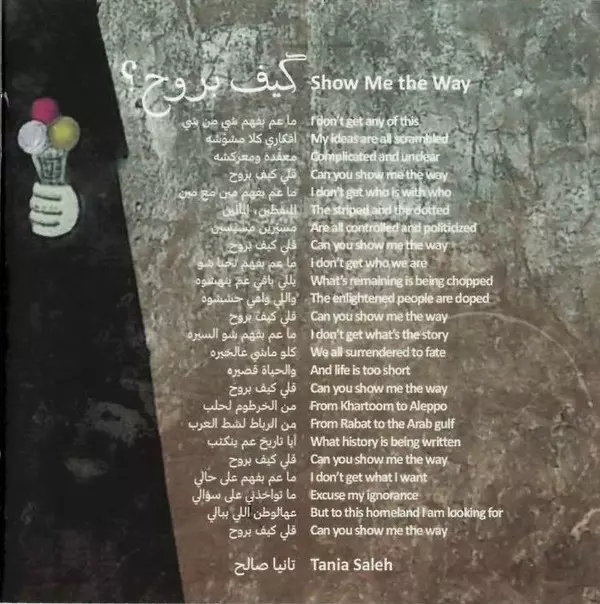 كيف بروح؟
ما عم بفهم شي من شي
أفكاري كلا مشوشه
معقده ومعركشه
قلي كيف بروح
ما عم بفهم مين مع مين
المنقطين،
مسيّرين مسيّسين
قلي كيف بروح
ما عم بفهم نحنا شو
يللي باقي عم ينهشوه
واللي واعي حششوه
قلي كيف بروح
ما عم بفهم شو السيره
كلو ماشي عالخيره
والحياة قصيره
قلي كيف بروح
من الخرطوم لحلب
من الرباط لشط العرب
أيا تاريخ عم ينكتب
قلي كيف بروح
ما عم بفهم على حالي
ما تواخذني على سؤالي
عهالوطن اللي ببالي
قلي كيف بروح
تانيا صالح
Show Me the Way
I don't get any of this
My ideas are all scrambled
Complicated and unclear
Can you show me the way
I don't get who is with who
The striped and the dotted
Are all controlled and politicized
Can you show me the way
I don't get who we are
What's remaining is being chopped
The enlightened people are doped
Can you show me the way
I don't get what's the story
We all surrendered to fate
And life is too short
Can you show me the way
From Khartoom to Aleppo
From Rabat to the Arab gulf
What history is being written
Can you show me the way
I don't get what I want
Excuse my ignorance
But to this homeland I am looking for
Can you show me the way
Tania Saleh